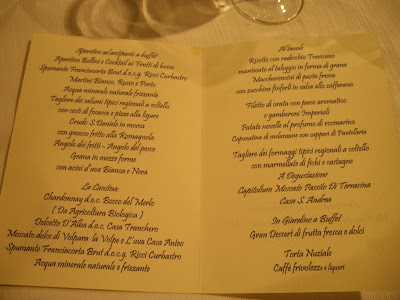 Aperitivo ed antipasto a buffet
Aperitivo Bellini e Cocktail ai Frutti di bosco
Spumante Franciacorta Brut d.o.c.g. Ricci Curbastro
Martini Bianco, Rosso e Porto
Acqua minerale naturale frizzante
Tagliere dei salumi tipici regionali a coltello
con cesti di focacce e pizze alla ligure
Crudo S.Daniele in morsa
con gnocco fritto alla Romagnola
Angolo dei fritti - Angolo del pesce
Grana in mezze forme
con acini d'uva Bianca e Nera
La Cantina:
Chardonnay d.o.c. Bosco del Merlo
( Da Agricoltura Biologica )
Dolcetto D'Alba d.o.c. Casa Tranchero
Moscato dolce di Volpara la Volpe e L'uva Casa Anteo
Spumante Franciacorta Brut d.o.c.g. Ricci Curbastro
Acqua minerale naturale e frizzante
Al tavolo
Risotto con radicchio Trevisano
mantecato al taleggio in forma di grana
Maccheroncini di pasta fresca
con zucchine fioferli in salsa allo zafferano
Filetto di orata con pane aromatico
e gamberoni Imperiali
Patate novelle al profumo di rosmarino
Caponatina di melanzane con capperi di Pantelleria
Tagliere dei formaggi tipici regionali a coltello
con marmellate di fichi e castagne
A Degustazione
Capitolium Moscato Passito Di Terracina
Casa S. Andrea
In Giardino a Buffet
Gran Dessert di frutta fresca e dolci
Torta Nuziale
Caffè frivolezze e liquori